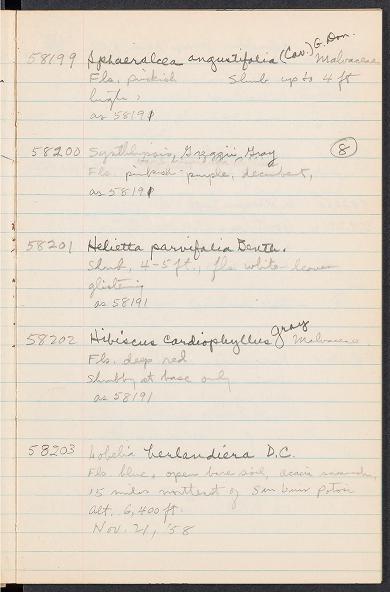 58199 Sphaeralcea angustifolia (Cav.) G. Don. Malvaceae
Fls. pinkish Shrub up to 4 ft
high,
as 58191
58200 Synthlipsis Greggii Gray 8
Fls. pinkish-purple, decumbent,
as 58191
58201 Helietta parvifolia Benth.
Shrub, 4-5 ft., fls white leaves
glistening
as 58191
58202 Hibiscus cardiophyllus Gray Malvaceae
Fls. deep red
Shrubby at base only
as 58191
58203 Lobelia berlandiera D.C.
Fls blue, open bare soil, acacia
15 miles northeast of San Luis Potosi
alt. 6,400 ft.
Nov. 21, '58